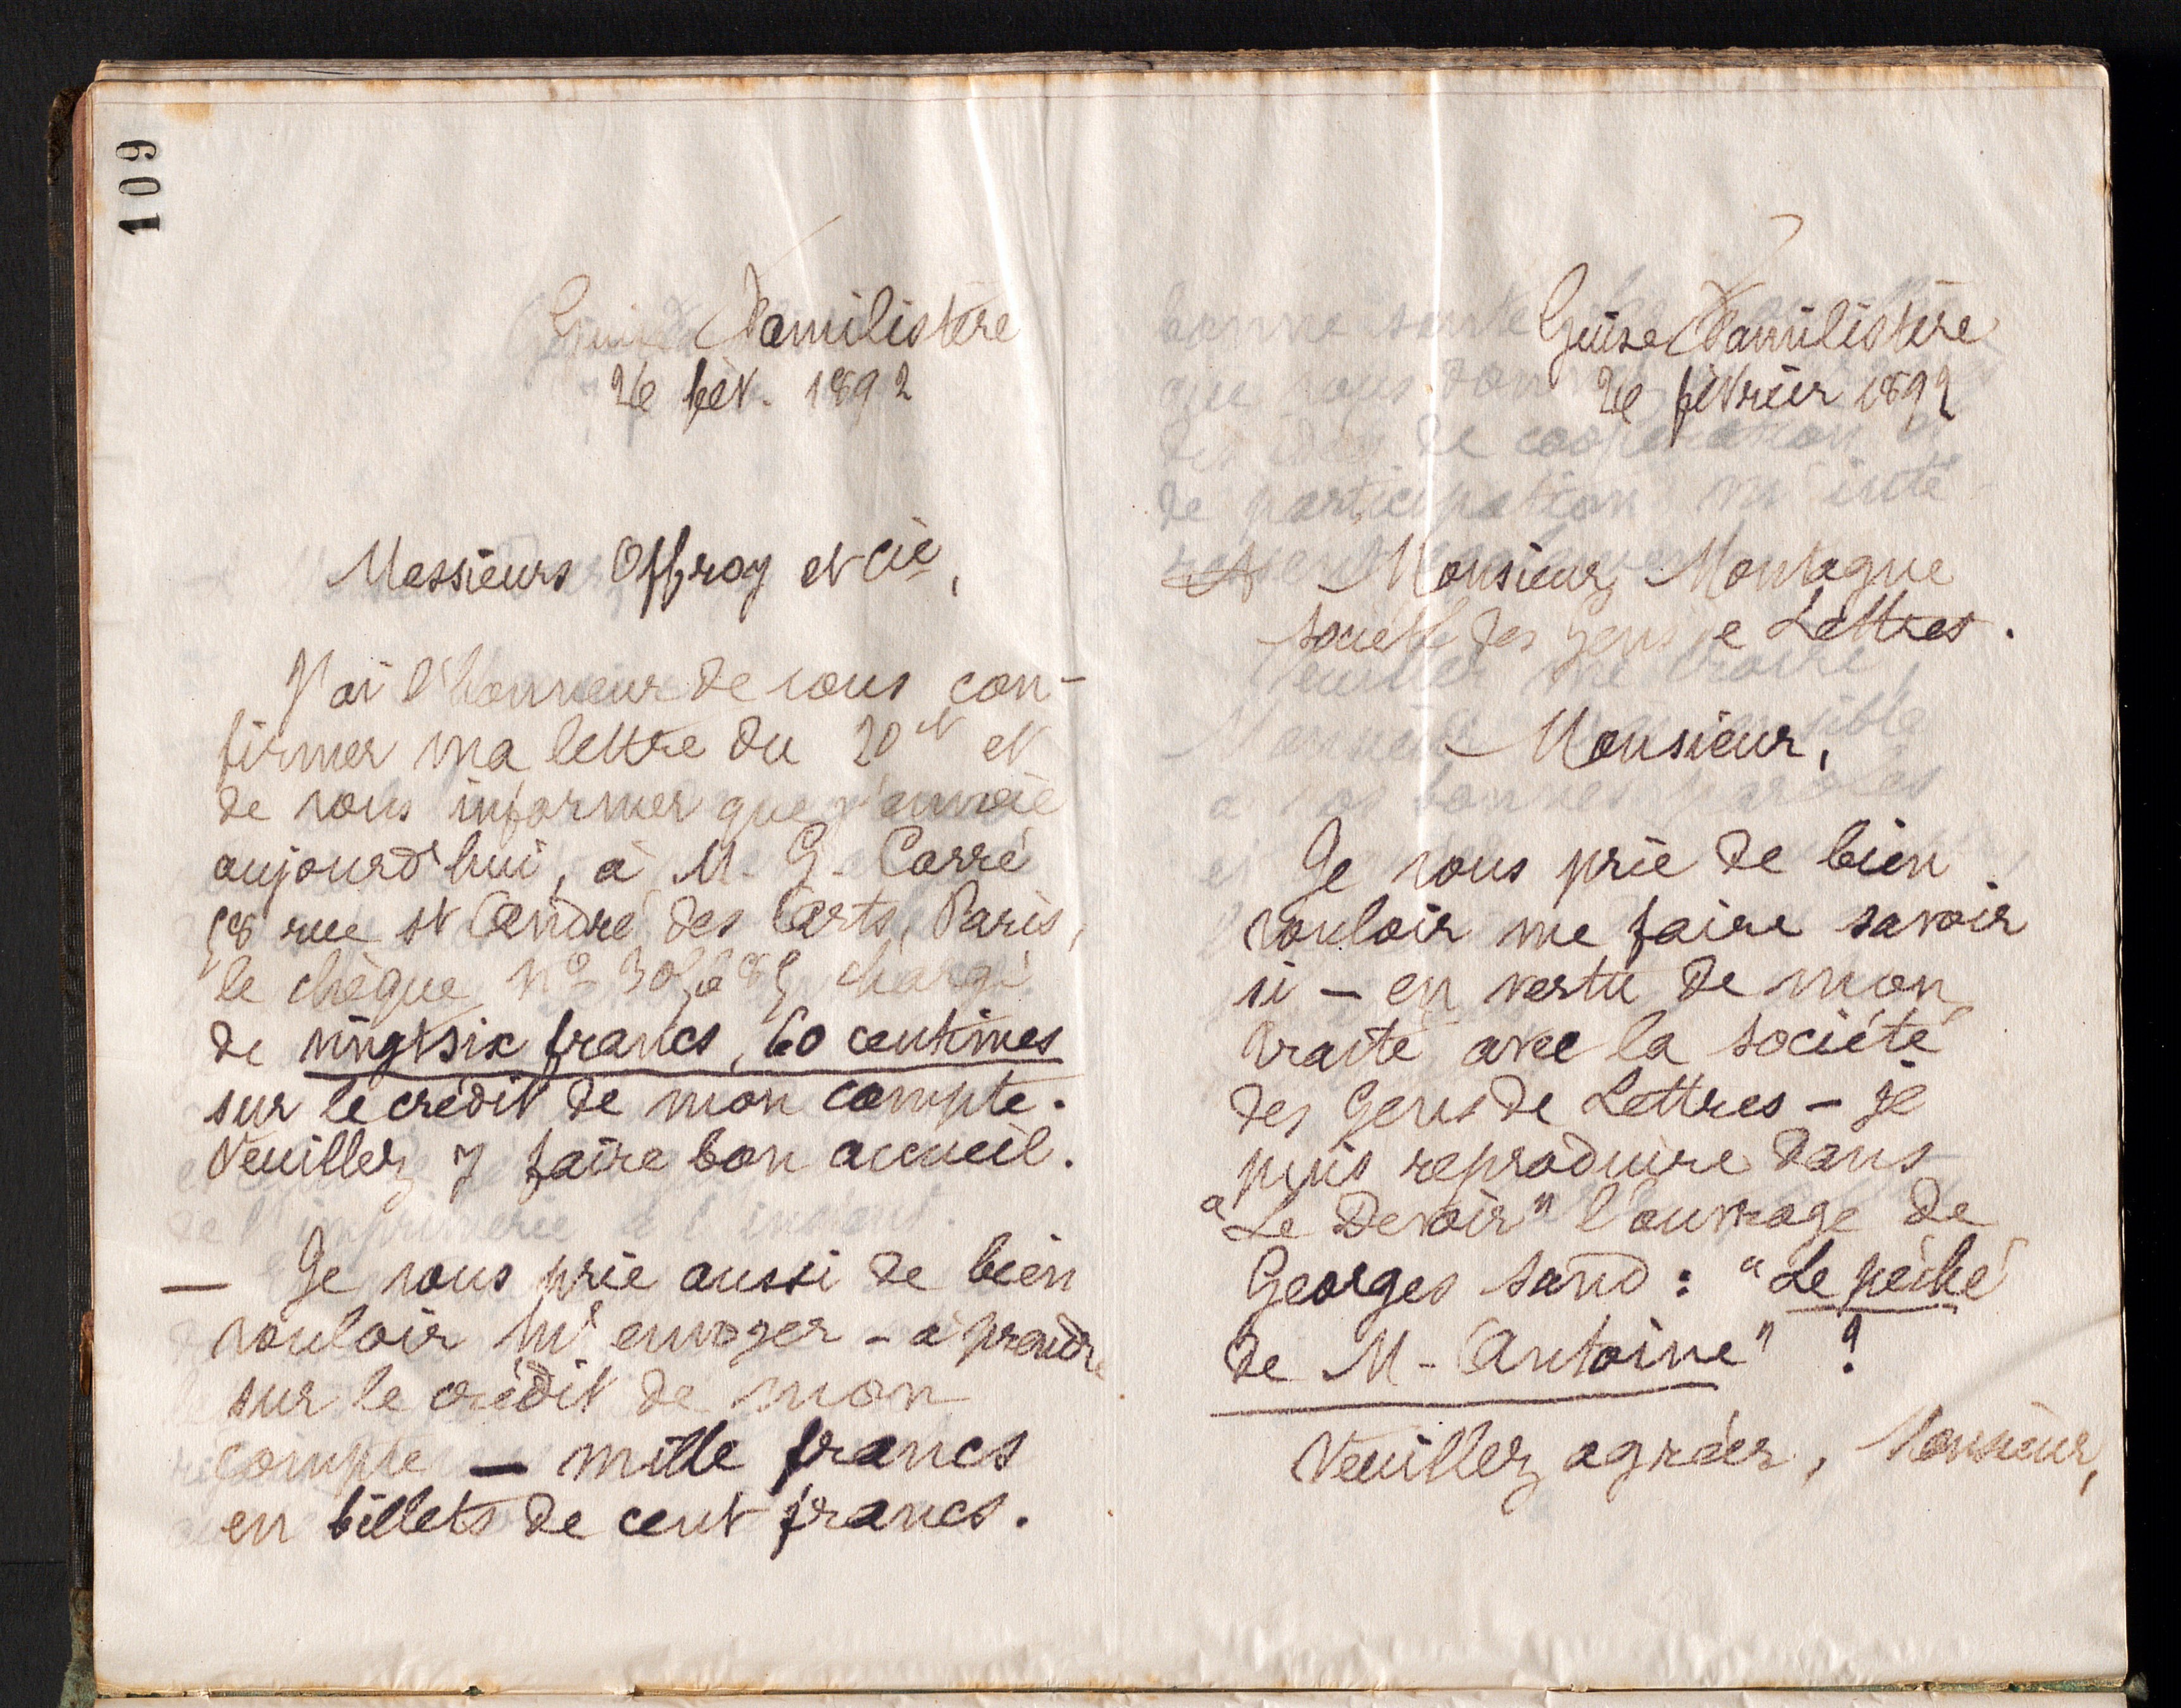 109
Guise Familistère
26 fév. 1892
Messieurs Offroy et Cie,
J'ai l'honneur de vous con-
firmer ma lettre du 20 ct et
de vous informer que j'envoie
aujourd'hui, à M. G. Carré
58 rue St André des Arts, Paris,
le chèque No chargé
de vingt six francs, 60 centimes
sur le crédit de mon compte.
Veuillez y faire bon accueil.
— Je vous prie aussi de bien
vouloir m'envoyer - à prendre
sur le crédit de mon
compte — mille francs
en billets de cent francs.
Guise Familistère
26 février 1892
A Monsieur Montagne
Société des Gens de Lettres.
Monsieur,
Je vous prie de bien
vouloir me faire savoir
si — en vertu de mon
traité avec la société
des Gens de Lettres — je
puis reproduire dans
"Le Devoir" l'ouvrage de
Georges Sand : "Le péché
de M. Antoine" ?
Veuillez agréer, Monsieur,